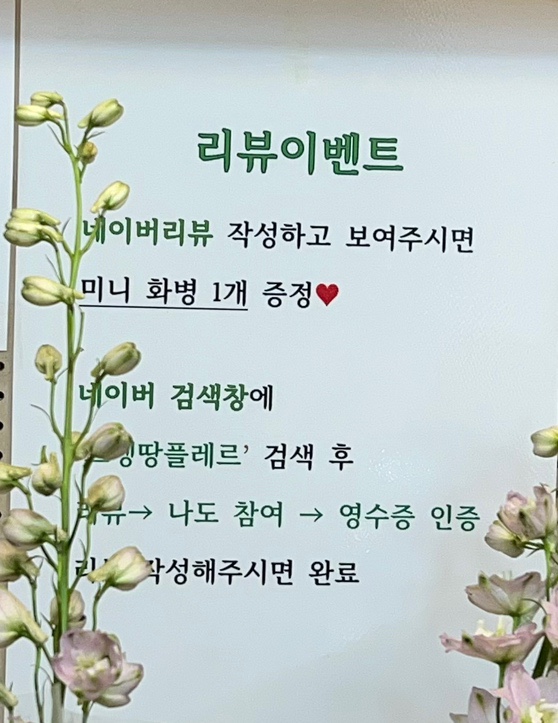 리뷰이벤트
네이버리뷰 작성하고 보여주시면
미니 화병 1개 증정♥
네이버 검색창에
검색 후
리뷰→ 나도 참여 → 영수증 인증
작성해주시면 완료